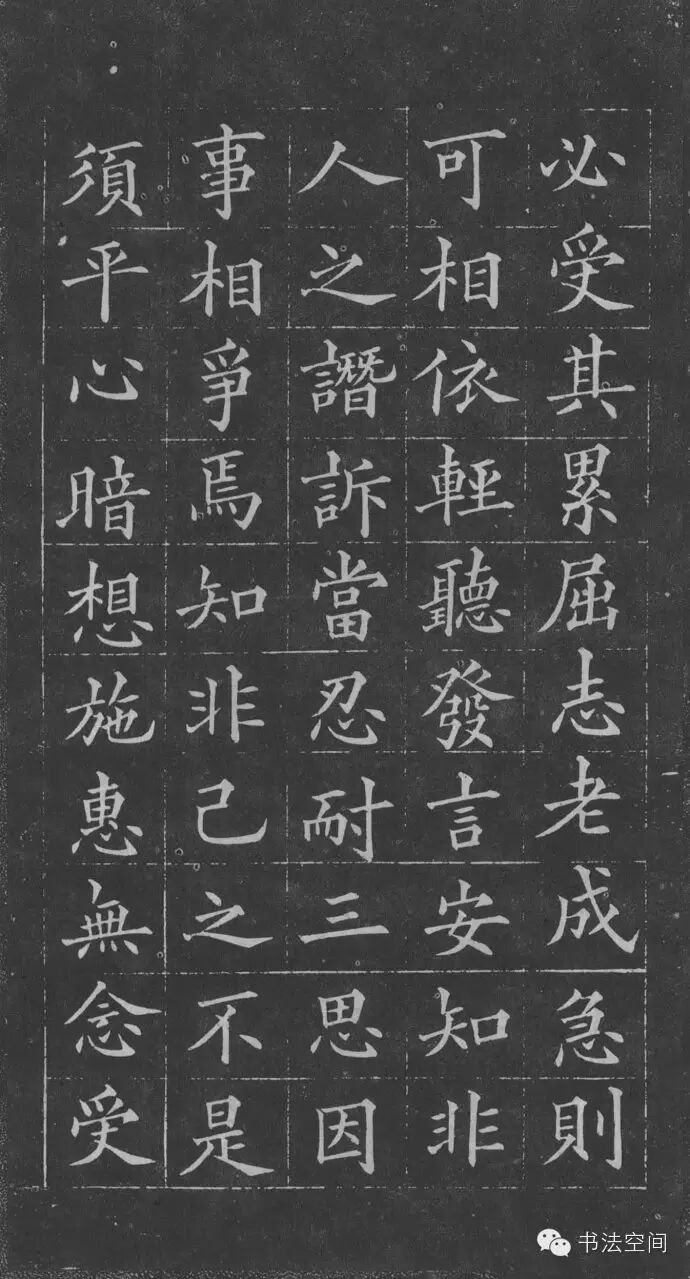 必受其累屈志老成急則
可相依輕聽發言安知非
人之譖訴當忍耐三思因
事相爭焉知非己之不是
須平心暗想施惠無念受
书法空间